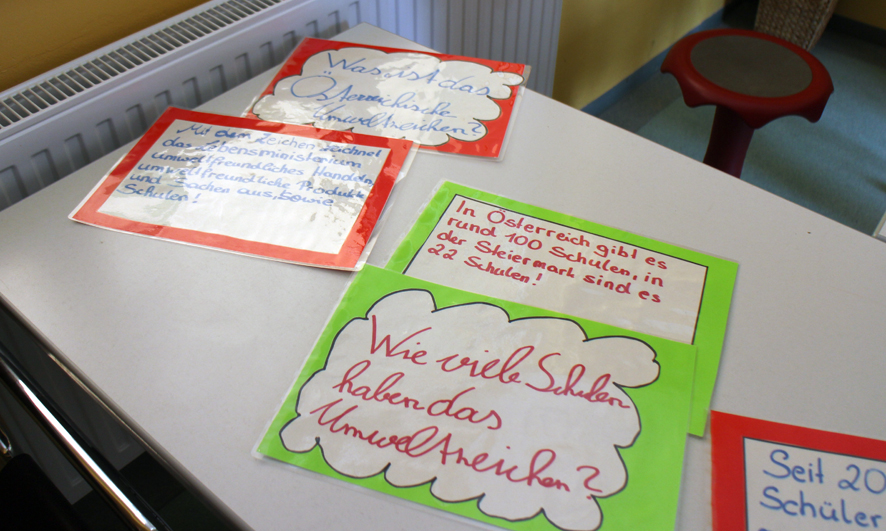 Was ist das
Österreichische
Umweltzeichen?
Mit dem Zeichen zeichnet
das Lebensministerium
umweltfreundliches Handeln,
umweltfreundliche Produkte
und Sachen aus, sowie
Schulen!
In Österreich gibt es
rund 100 Schulen, in
der Steiermark sind es
22 Schulen!
Wie viele Schulen
haben das
Umweltzeichen?
Seit 20
Schüler